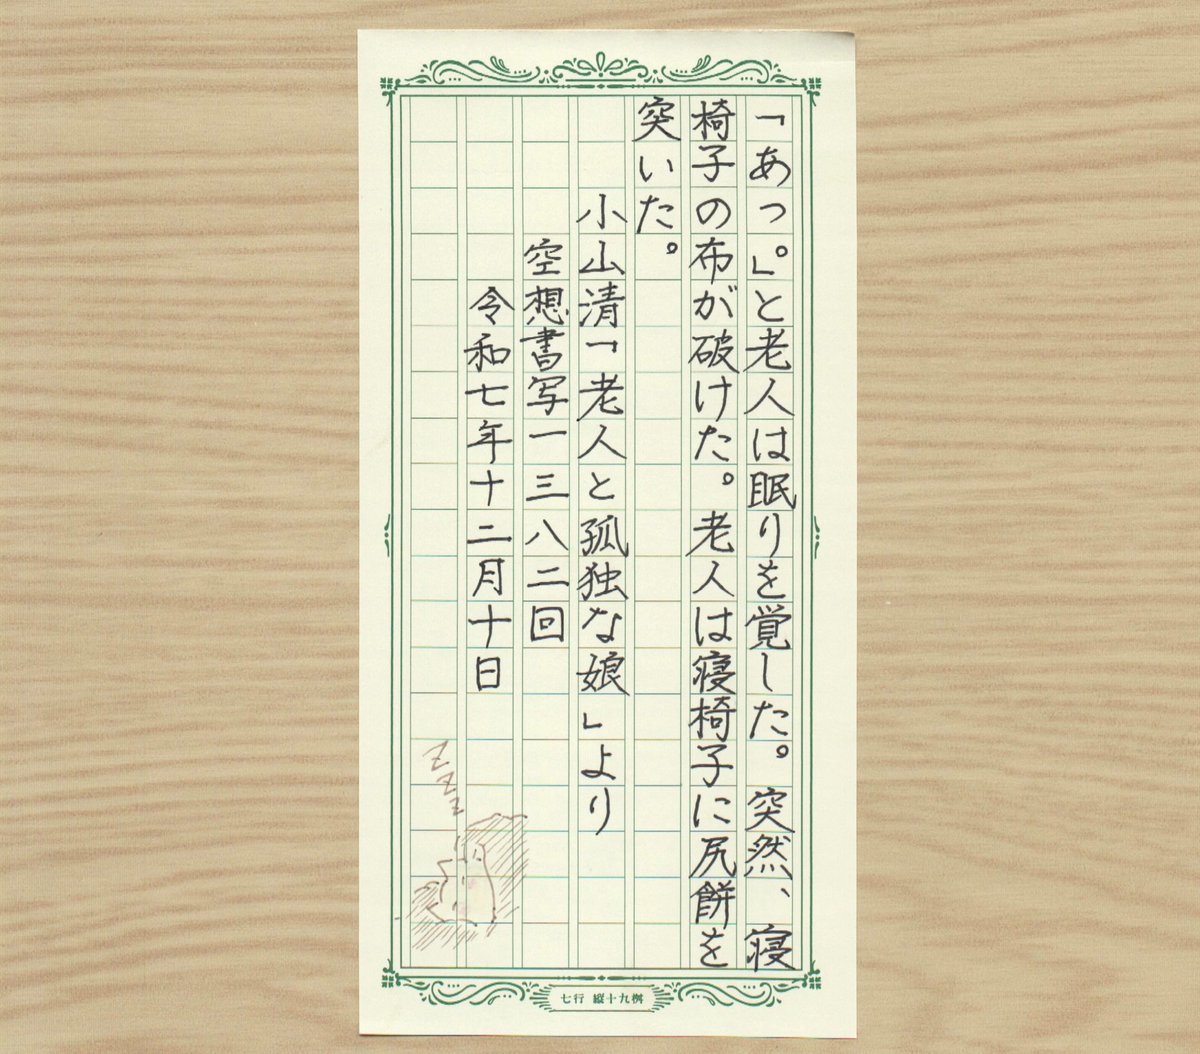 「あっ。」と老人は眠りを覚した。突然、寝
椅子の布が破けた。老人は寝椅子に尻餅を
突いた。
小山清「老人と孤独な娘」より
空想書写一三八二回
令和七年十二月十日
zzz
七行 縦十九桝